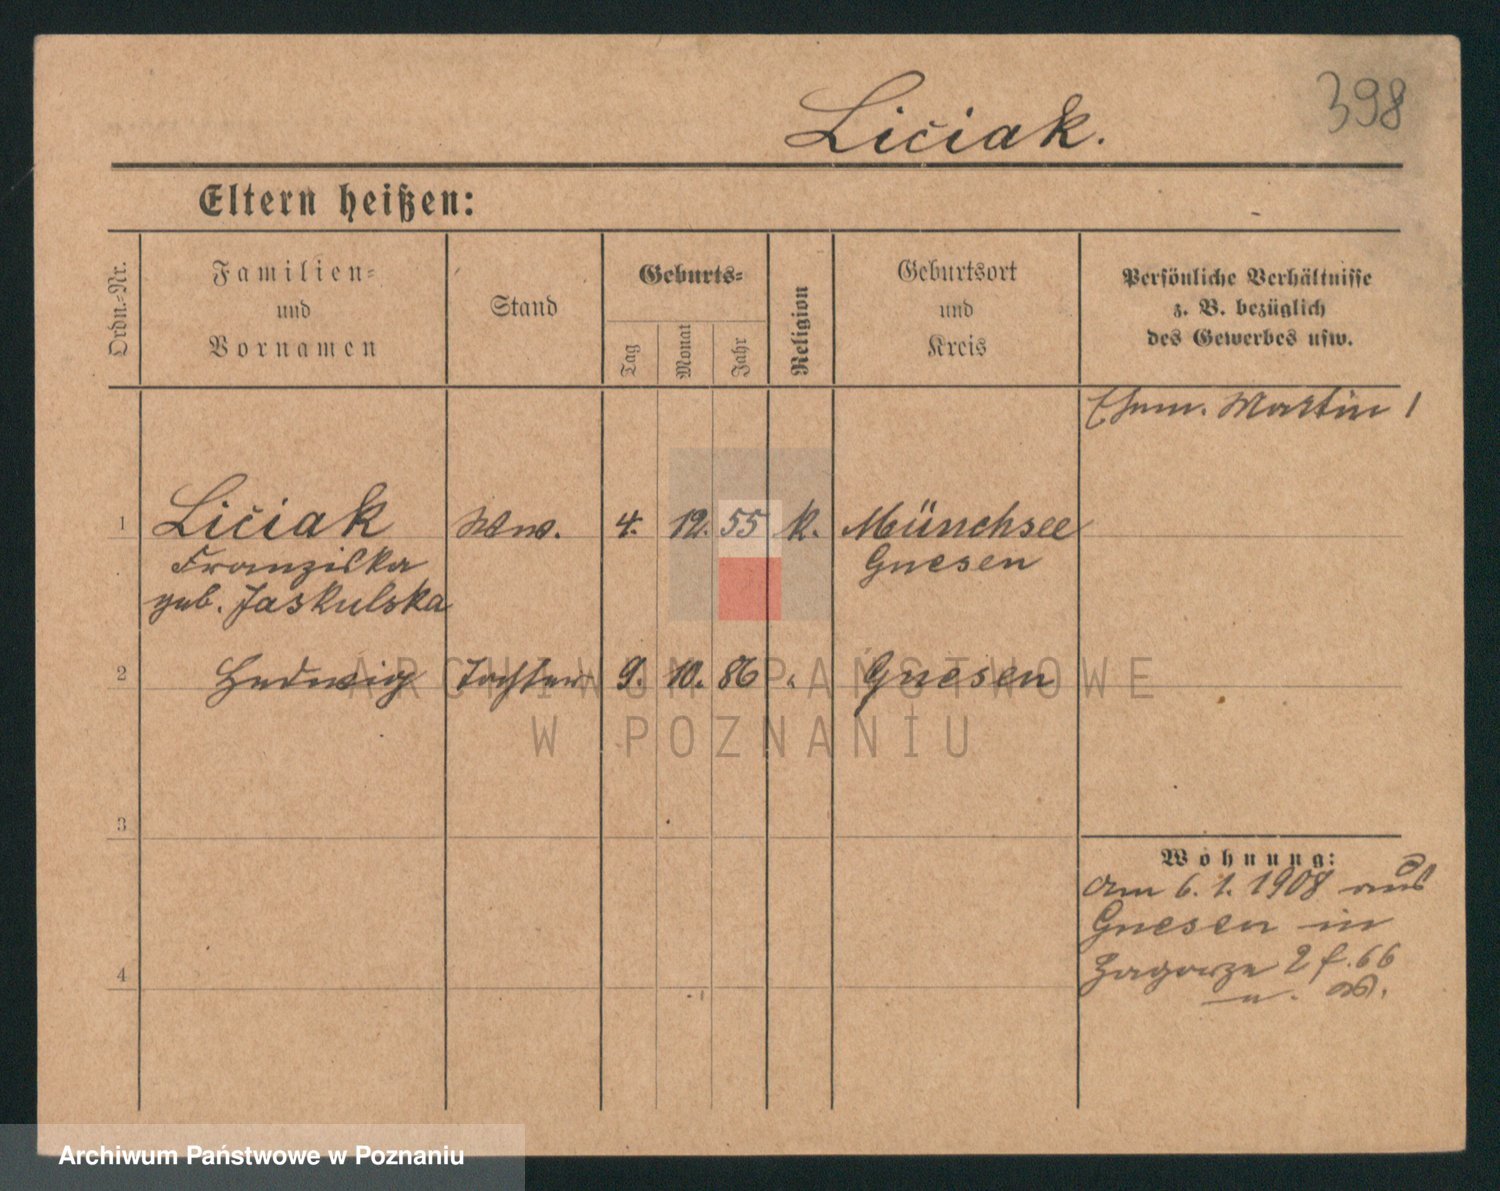 398
Ličiak.
Eltern heißen:
Ordn.=Nr.
Familien=
und
Vornamen
Stand
Geburts=
Tag
Monat
Jahr
Religion
Geburtsort
und
Kreis
Persönliche Verhältnisse
z. B. bezüglich
des Gewerbes usw.
Ehem. Martin
1 Ličiak Ww. 4. 12. 55 k. Münchsee
Franziska Gnesen
geb. Jaskulska
2 Hedwig Tochter 9. 10. 86 " Gnesen
3
Wohnung:
am 6. 1. 1908 aus
Gnesen in
4
Zagorze 2 f. 66
ARCHIWUM PAŃSTWOWE
W POZNANIU
Archiwum Państwowe w Poznaniu